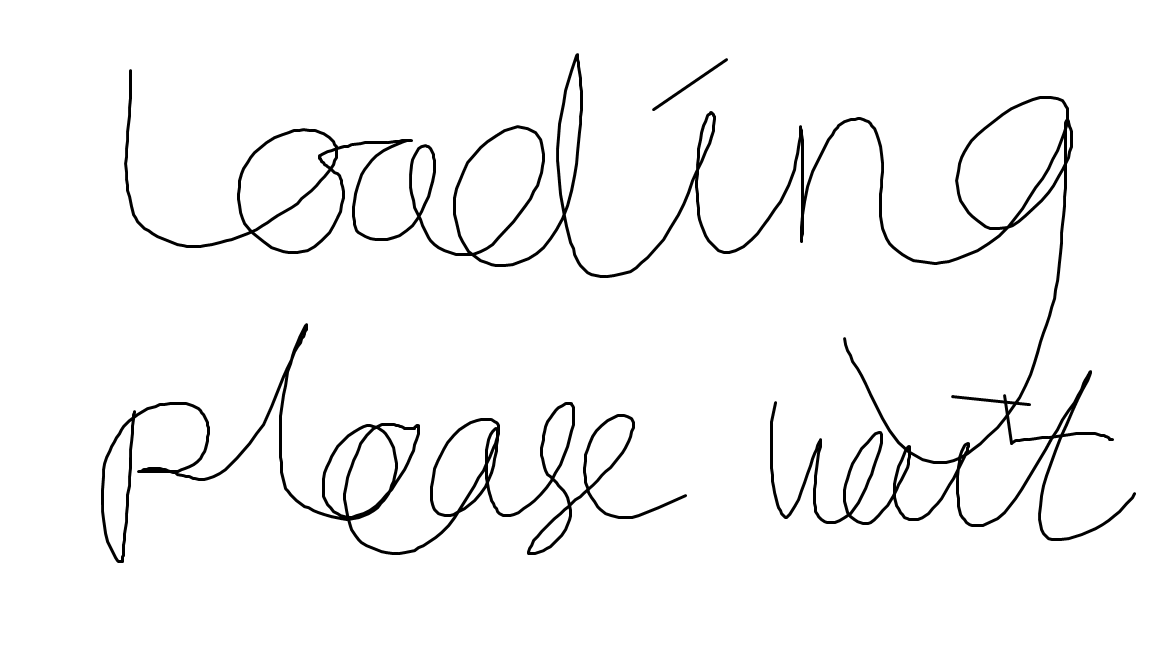 Loading
please wait